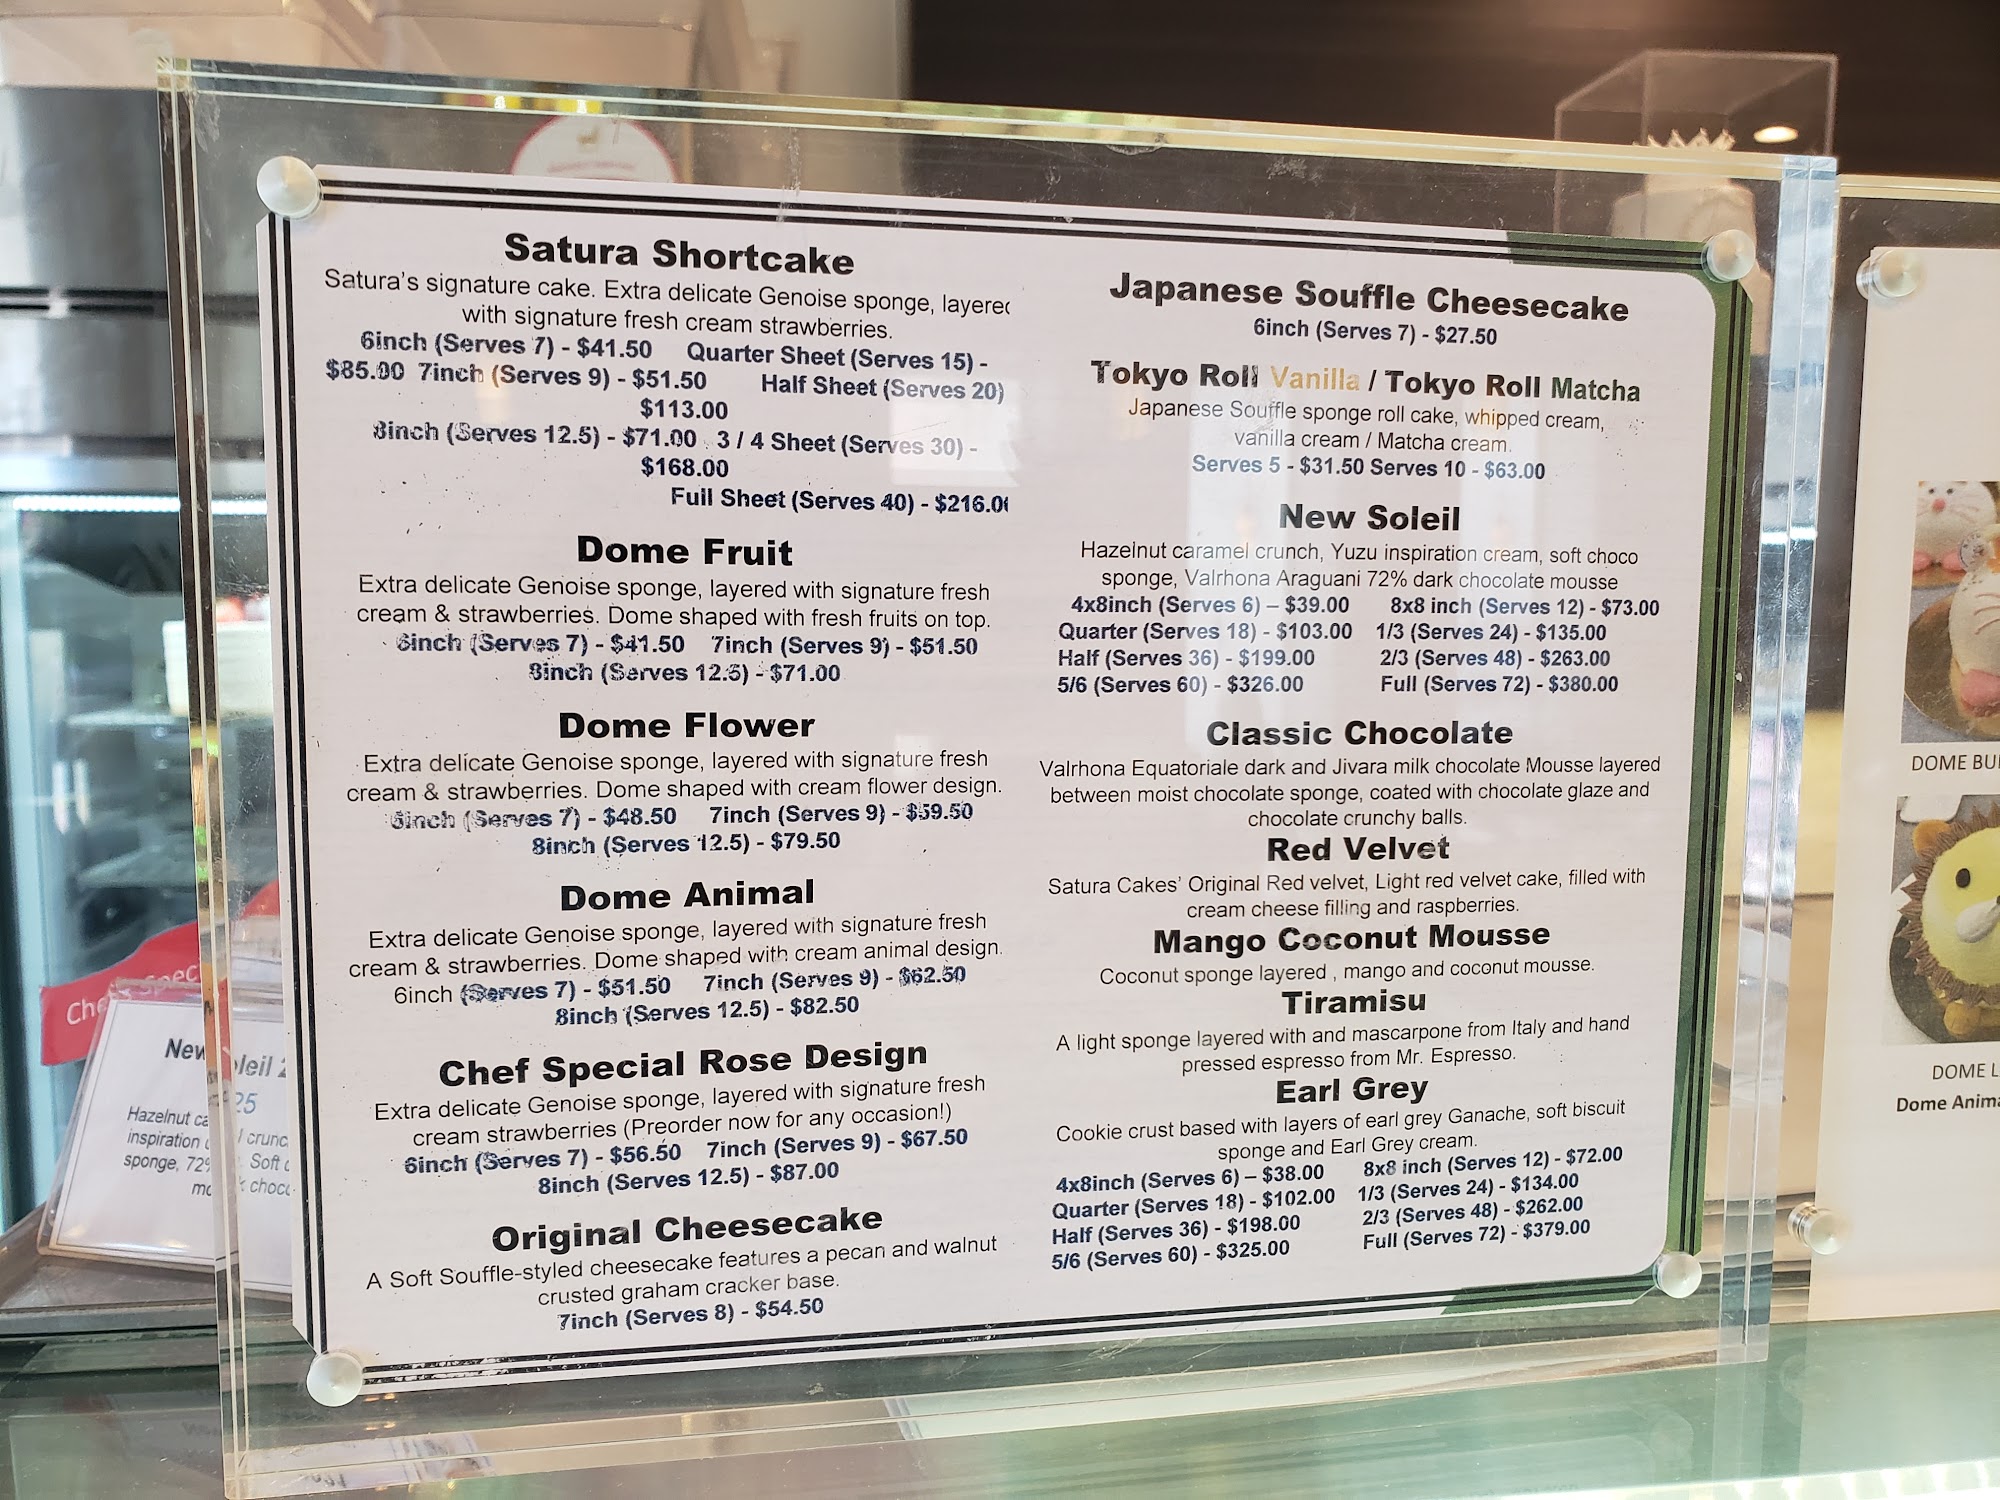 Satura Shortcake
Satura's signature cake. Extra delicate Genoise sponge, layered
with signature fresh cream strawberries.
6inch (Serves 7) - $41.50 Quarter Sheet (Serves 15) -
$85.00 7inch (Serves 9) - $51.50 Half Sheet (Serves 20)
$113.00
8inch (Serves 12.5) - $71.00 3 / 4 Sheet (Serves 30) -
$168.00
Full Sheet (Serves 40) - $216.00
Dome Fruit
Extra delicate Genoise sponge, layered with signature fresh
cream & strawberries. Dome shaped with fresh fruits on top.
6inch (Serves 7) - $41.50 7inch (Serves 9) - $51.50
8inch (Serves 12.5) - $71.00
Dome Flower
Extra delicate Genoise sponge, layered with signature fresh
cream & strawberries. Dome shaped with cream flower design.
6inch (Serves 7) - $48.50 7inch (Serves 9) - $59.50
8inch (Serves 12.5) - $79.50
Dome Animal
Extra delicate Genoise sponge, layered with signature fresh
cream & strawberries. Dome shaped with cream animal design.
6inch (Serves 7) - $51.50 7inch (Serves 9) - $62.50
8inch (Serves 12.5) - $82.50
Chef Special Rose Design
Extra delicate Genoise sponge, layered with signature fresh
cream strawberries (Preorder now for any occasion!)
6inch (Serves 7) - $56.50 7inch (Serves 9) - $67.50
8inch (Serves 12.5) - $87.00
Original Cheesecake
A Soft Souffle-styled cheesecake features a pecan and walnut
crusted graham cracker base.
7inch (Serves 8) - $54.50
Japanese Souffle Cheesecake
6inch (Serves 7) - $27.50
Tokyo Roll Vanilla / Tokyo Roll Matcha
Japanese Souffle sponge roll cake, whipped cream,
vanilla cream / Matcha cream.
Serves 5 - $31.50 Serves 10 - $63.00
New Soleil
Hazelnut caramel crunch, Yuzu inspiration cream, soft choco
sponge, Valrhona Araguani 72% dark chocolate mousse
4x8inch (Serves 6) – $39.00 8x8 inch (Serves 12) - $73.00
Quarter (Serves 18) - $103.00 1/3 (Serves 24) - $135.00
Half (Serves 36) - $199.00 2/3 (Serves 48) - $263.00
5/6 (Serves 60) - $326.00 Full (Serves 72) - $380.00
Classic Chocolate
Valrhona Equatoriale dark and Jivara milk chocolate Mousse layered
between moist chocolate sponge, coated with chocolate glaze and
chocolate crunchy balls.
Red Velvet
Satura Cakes' Original Red velvet, Light red velvet cake, filled with
cream cheese filling and raspberries.
Mango Coconut Mousse
Coconut sponge layered , mango and coconut mousse.
Tiramisu
A light sponge layered with and mascarpone from Italy and hand
pressed espresso from Mr. Espresso.
Earl Grey
Cookie crust based with layers of earl grey Ganache, soft biscuit
sponge and Earl Grey cream.
4x8inch (Serves 6) – $38.00 8x8 inch (Serves 12) - $72.00
Quarter (Serves 18) - $102.00 1/3 (Serves 24) - $134.00
Half (Serves 36) - $198.00 2/3 (Serves 48) - $262.00
5/6 (Serves 60) - $325.00 Full (Serves 72) - $379.00
New
Hazelnut ca
inspiration
sponge, 72%
DOME BU
DOME L
Dome Anima